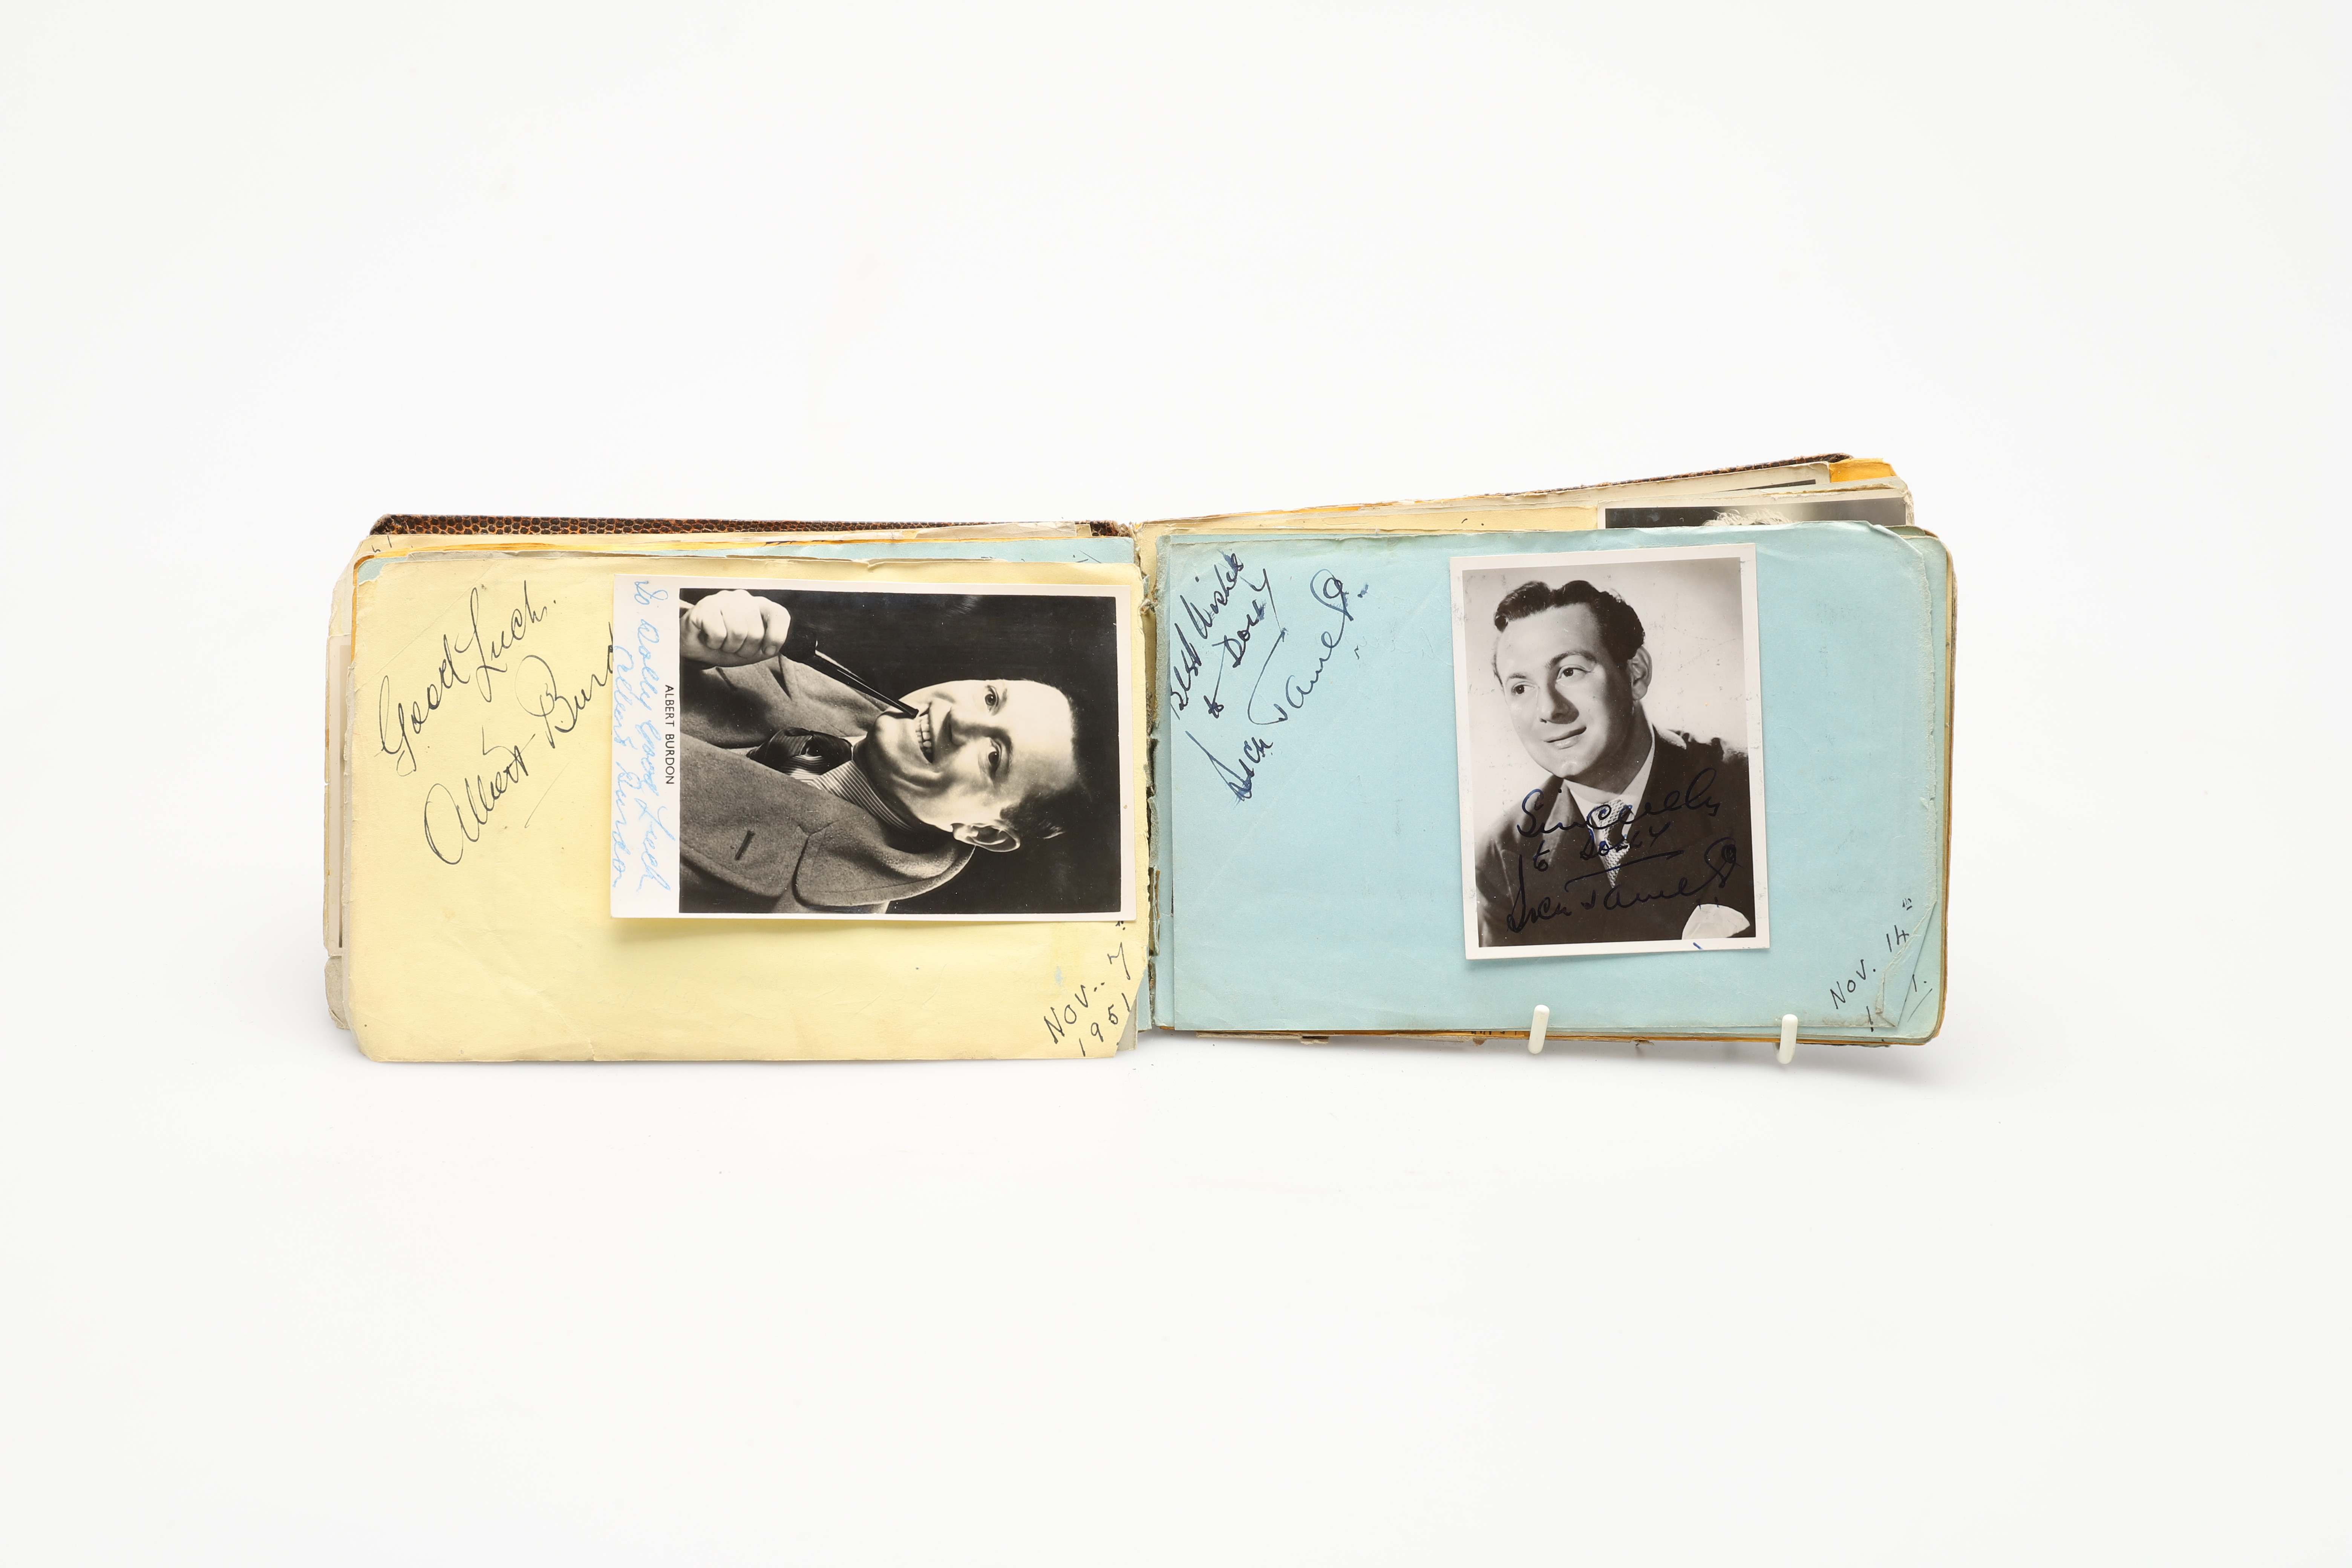 Good Luck.
Albert Burd
ALBERT BURDON
To Dolly Good Luck
Albert Burdon
Nov. 7"
1951
Best Wishes
to Dolly
Dick James
Sincerely
to Dolly
Dick James
Nov. 14"